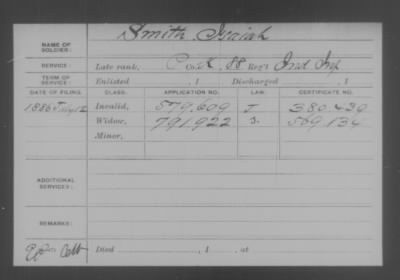 Smith, Isaiah
NAME OF
SOLDIER:
SERVICE:
Late rank, Co. K, 88 Reg't Ind Inf
TERM OF
SERVICE:
Enlisted , 1 Discharged , 1
DATE OF FILING. CLASS. APPLICATION NO. LAW. CERTIFICATE NO.
1886 Invalid, 579.609 J. 380.439
Widow, 791.922 J. 569.134
Minor,
ADDITIONAL
SERVICES:
REMARKS:
Died , 1 , at